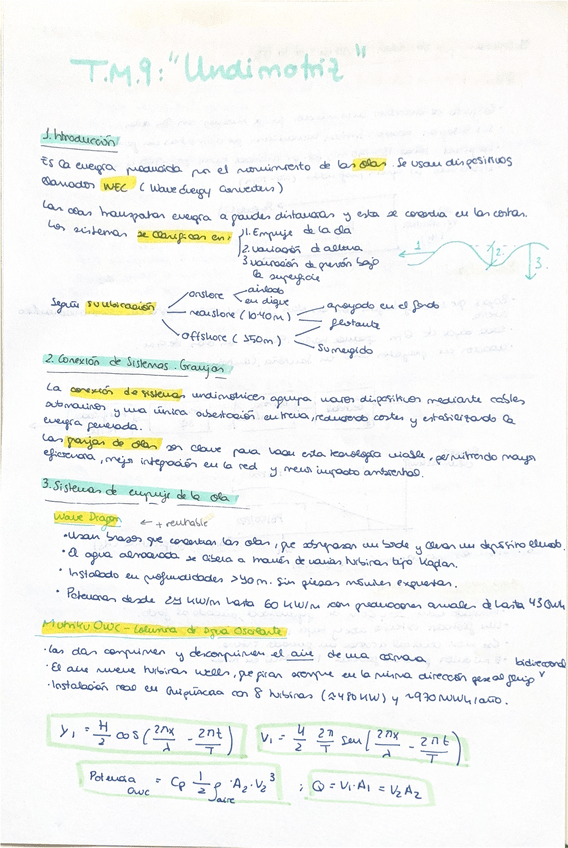 T.M.9: "Undimotriz"
1. Introducción
Es la energía producida por el movimiento de las olas. Se usan dispositivos
llamados WEC (Wave Energy Converters)
Las olas transportan energía a grandes distancias y esta se concentra en las costas.
Los sistemas se clasifican en: 1. Empuje de la ola
2. variación de altura
3 variación de presión bajo
la superficie
1 2 3.
Según su ubicación
onshore aislado
en dique
nearshore (10-40m) apoyado en el fondo
flotante
offshore (>50m) Sumergido
2. Conexión de Sistemas. Granjas
La conexión de sistemas undimotrices agrupa varios dispositivos mediante cables
submarinos y una única subestación en tierra, reduciendo costes y estabilizando la
energía generada.
Las granjas de olas son clave para hacer esta tecnología viable, permitiendo mayor
eficiencia, mejor integración en la red y menor impacto ambiental.
3. Sistemas de empuje de la ola
Wave Dragon ← + rentable
• Usan brazos que concentran las olas, que sobrepasan un borde y llenan un depósito elevado.
• El agua almacenada se libera a través de varias turbinas tipo Kaplan.
• Instalado en profundidades >40 m. Sin piezas móviles expuestas.
• Potencias desde 24 kW/m hasta 60 kW/m con producciones anuales de hasta 43 GWh
Mutriku OWC - Columna de Agua Oscilante
• Las olas comprimen y descomprimen el aire de una cámara
bidireccional
• El aire mueve turbinas Wells, que giran siempre en la misma dirección pese al flujo
• Instalación real en Guipúzcoa con 8 turbinas (≈480 KW) y ~970 MWh/año.
y₁ = H/2 cos(2πx/λ - 2πt/T) V₁ = H/2 2π/T sen(2πx/λ - 2πt/T)
Potencia OWC = Cp 1/2 ρ aire · A₂ · V₂³ ; Q = V₁·A₁ = V₂A₂